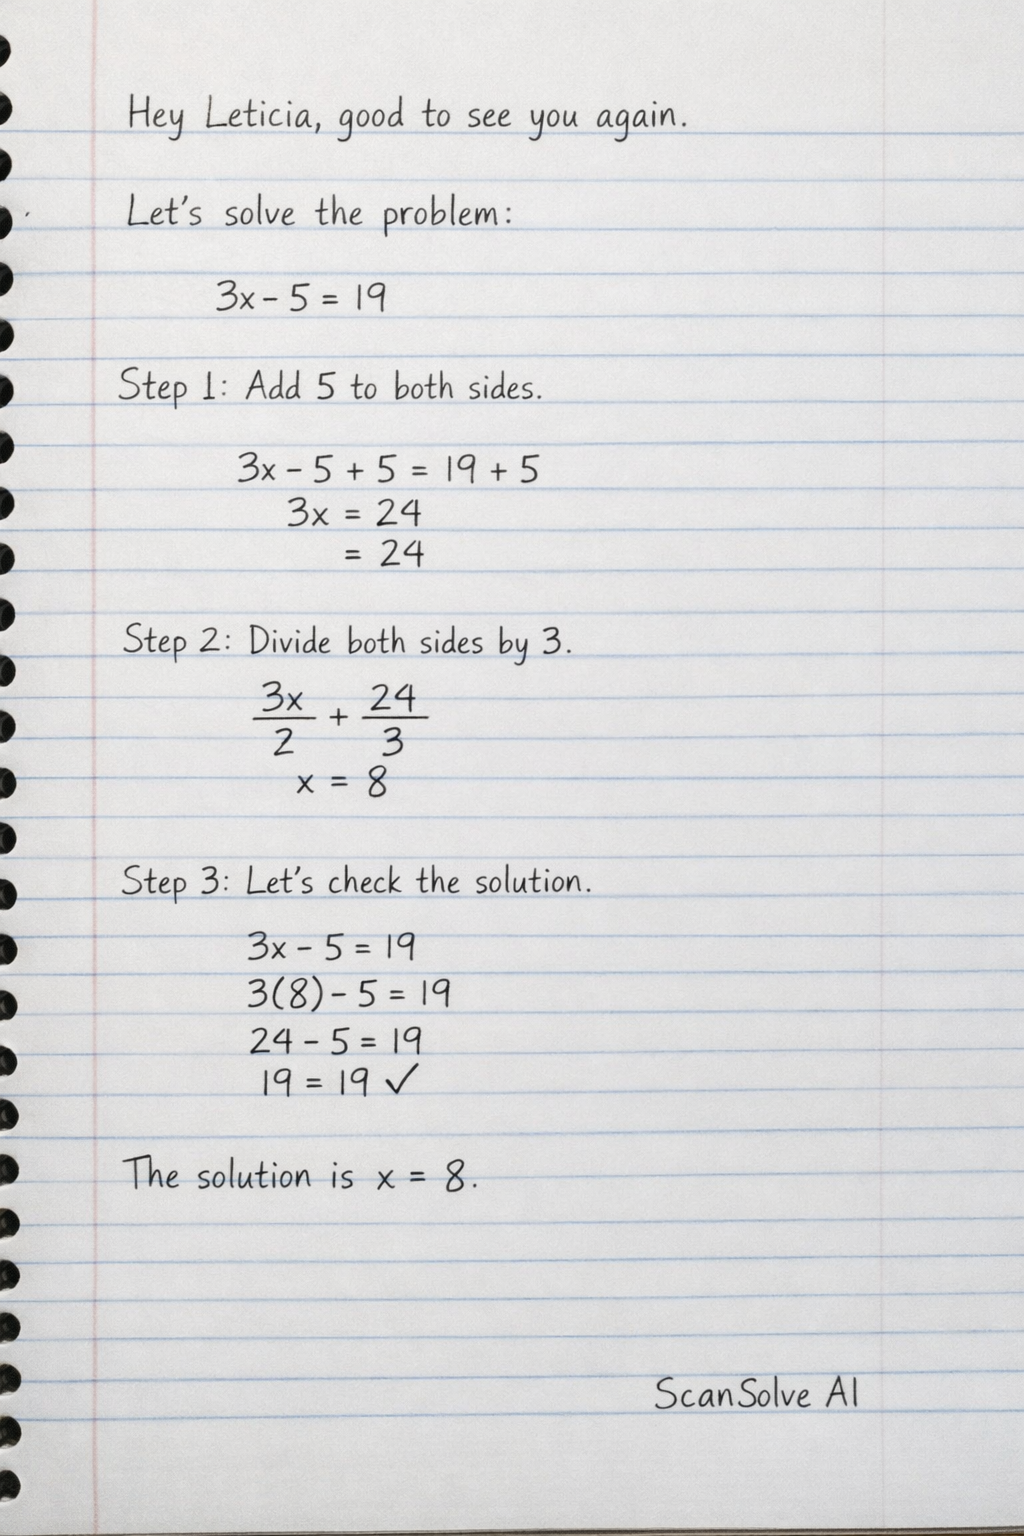 Hey Leticia, good to see you again.
Let's solve the problem:
3x - 5 = 19
Step 1: Add 5 to both sides.
3x - 5 + 5 = 19 + 5
3x = 24
= 24
Step 2: Divide both sides by 3.
3x/2 + 24/3
x = 8
Step 3: Let's check the solution.
3x - 5 = 19
3(8) - 5 = 19
24 - 5 = 19
19 = 19 ✓
The solution is x = 8.
ScanSolve AI